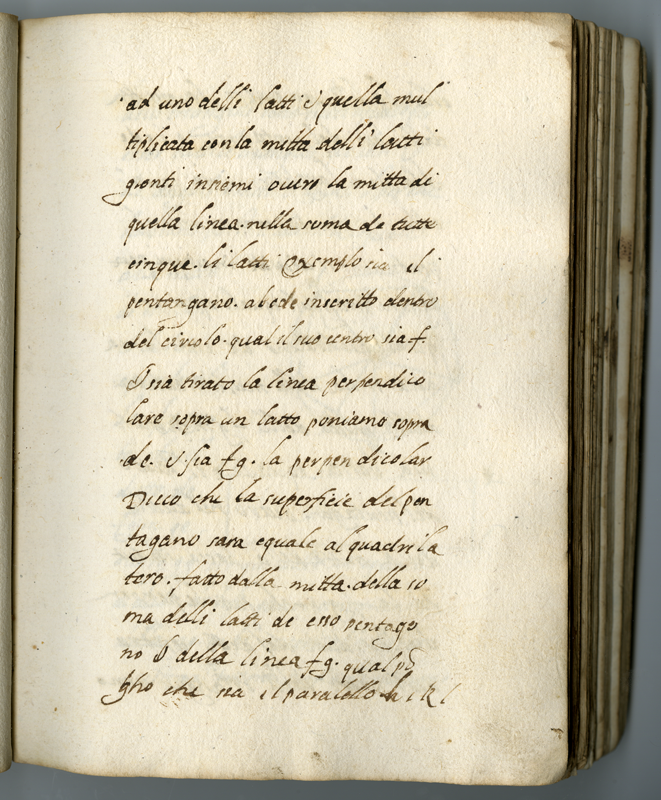 ad uno delli latti & quella mul
tiplicata con la mitta delli latti
gionti insiemi overo la mitta di
quella linea. nella soma de tutte
cinque. li latti Exemplo sia il
pentangano. abcde inscritto dentro
del circolo. qual il suo centro sia f.
& sia tirato la linea perpendico
lare sopra un latto poniamo sopra
.de. & sia fg. la perpendicolar
Dicco che la superficie del pen
tagano sara equale al quadrila
tero. fatto dalla mitta. della so
ma delli latti de esso pentago
no & della linea fg. qual
che sia il paralello h i k l